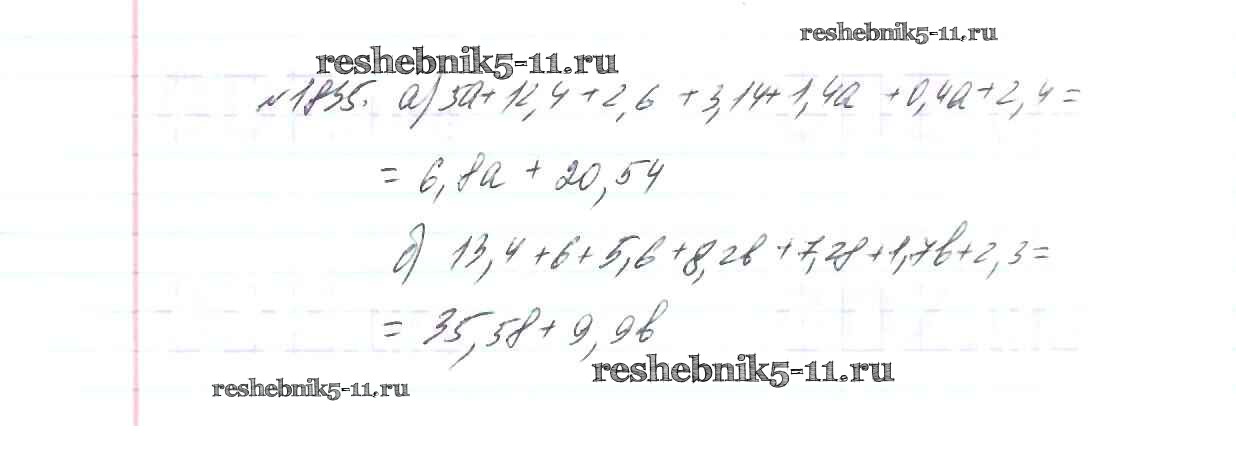 reshebnik5-11.ru
reshebnik5-11.ru
№1835. а) 5а+12,4+2,6 +3,14+1,4а +0,4а+2,4=
= 6,8а + 20,54
б) 13,4+6+5,6+8,2в+7,28+1,7в+2,3=
= 35,58+9,9в
reshebnik5-11.ru
reshebnik5-11.ru